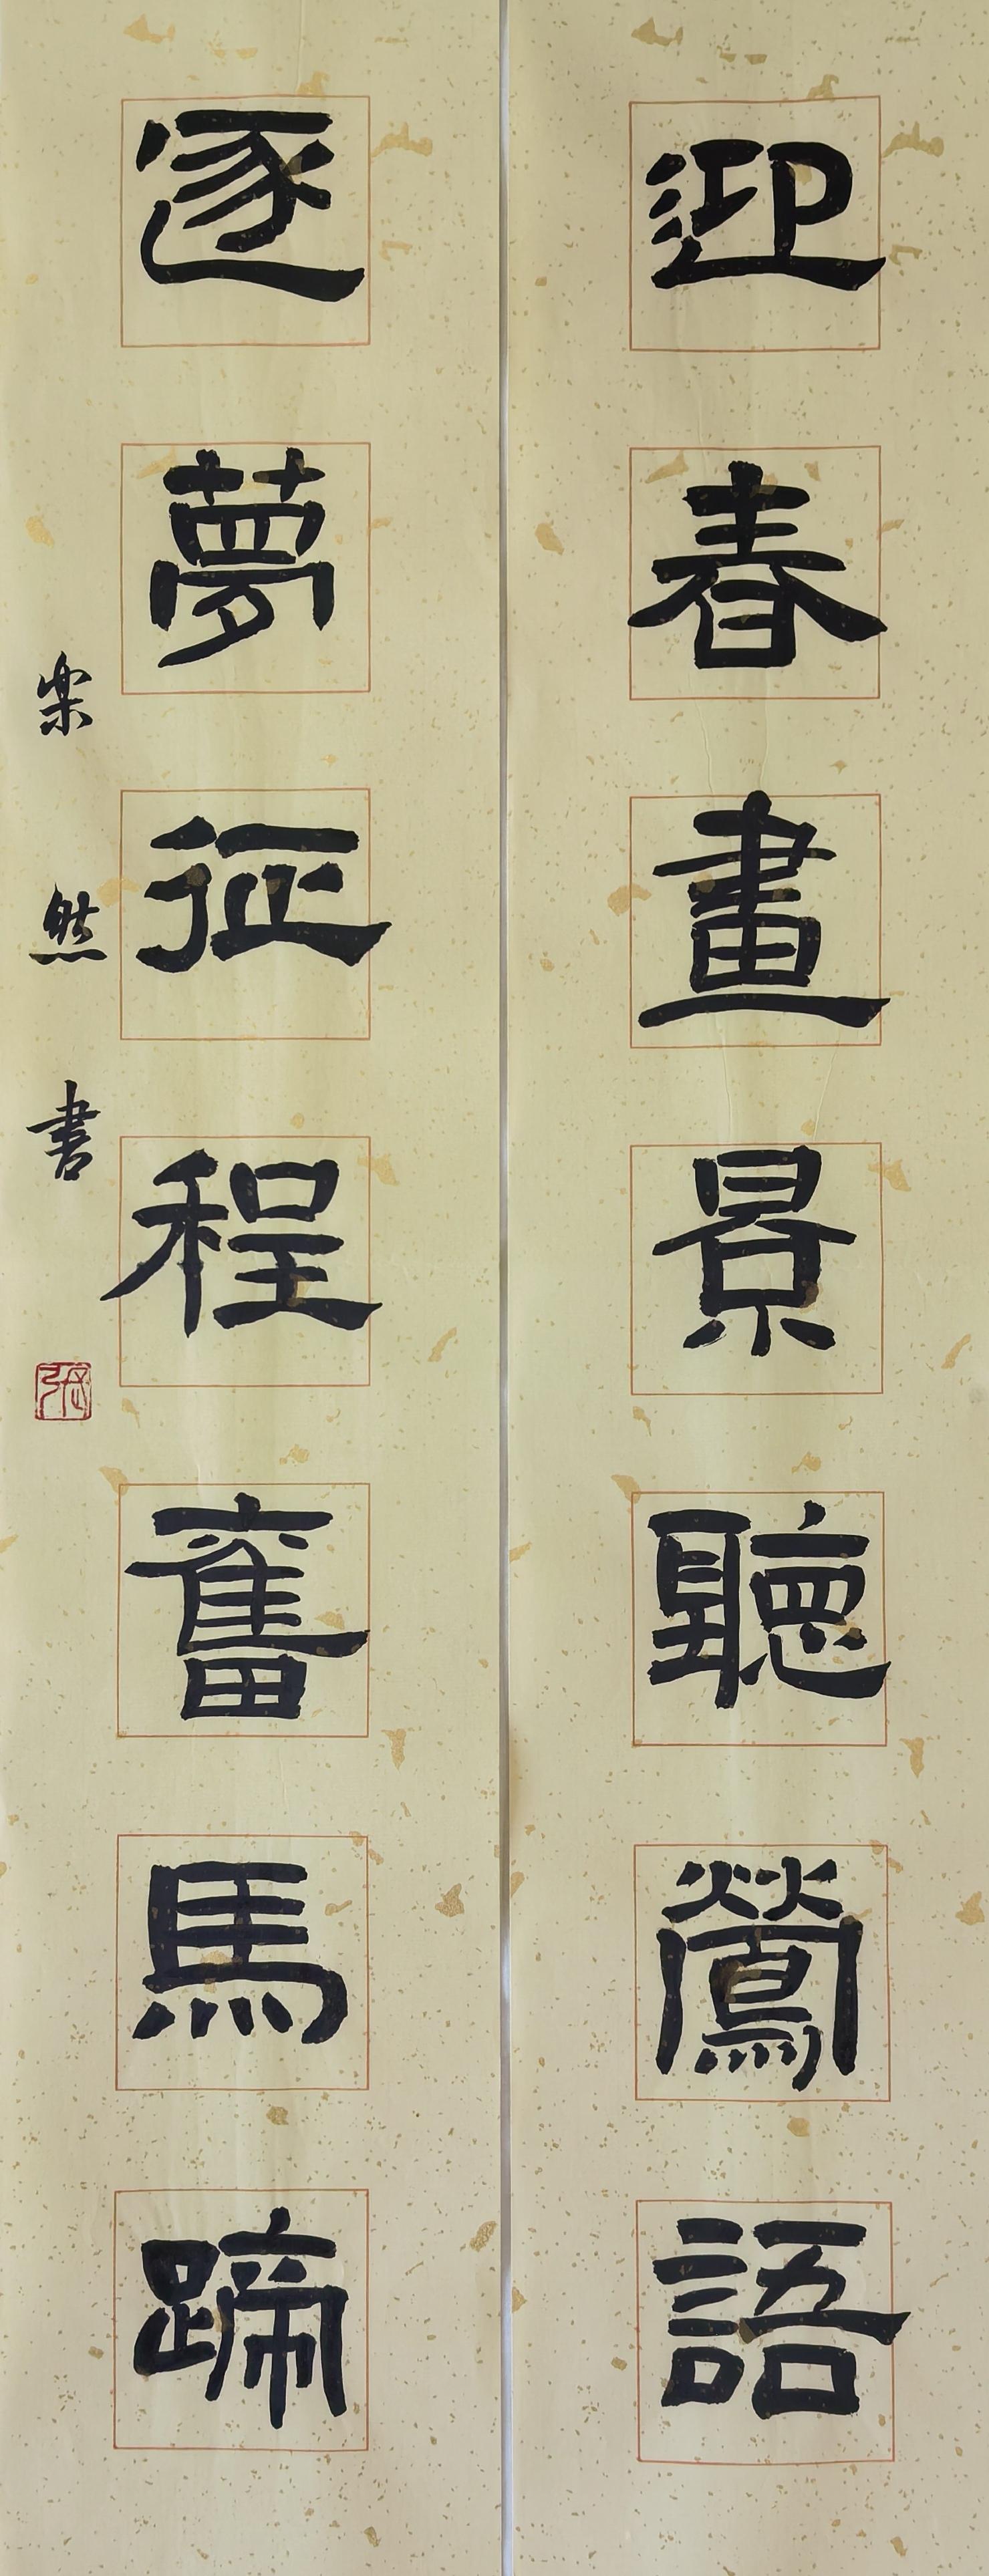 迎春畫景聽鶯語
逐夢征程奮馬蹄
樂然書
張